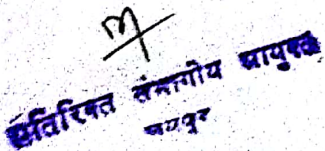 अतिरिक्त संभागीय आयुक्त
जयपुर